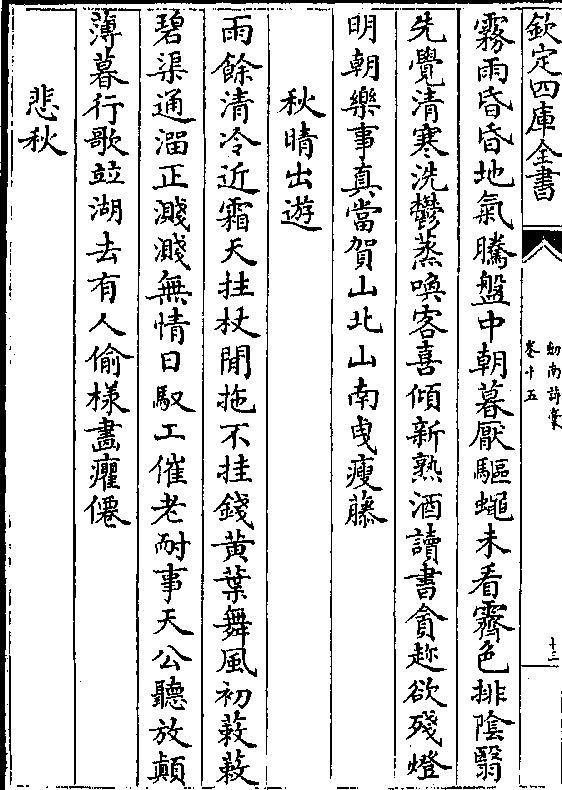 欽定四庫全書
劒南詩稾
卷十五
十三
霧雨昏昏地氣騰盤中朝暮厭驅蠅未看霽色排陰翳
先覺清寒洗鬱蒸喚客喜傾新熟酒讀書貪趂欲殘燈
明朝樂事真當賀山北山南曳瘦藤
秋晴出遊
雨餘清冷近霜天拄杖閒拖不挂錢黃葉舞風初蔌蔌
碧渠通溜正濺濺無情日馭工催老耐事天公聽放顛
薄暮行歌竝湖去有人偷様畵癯僊
悲秋